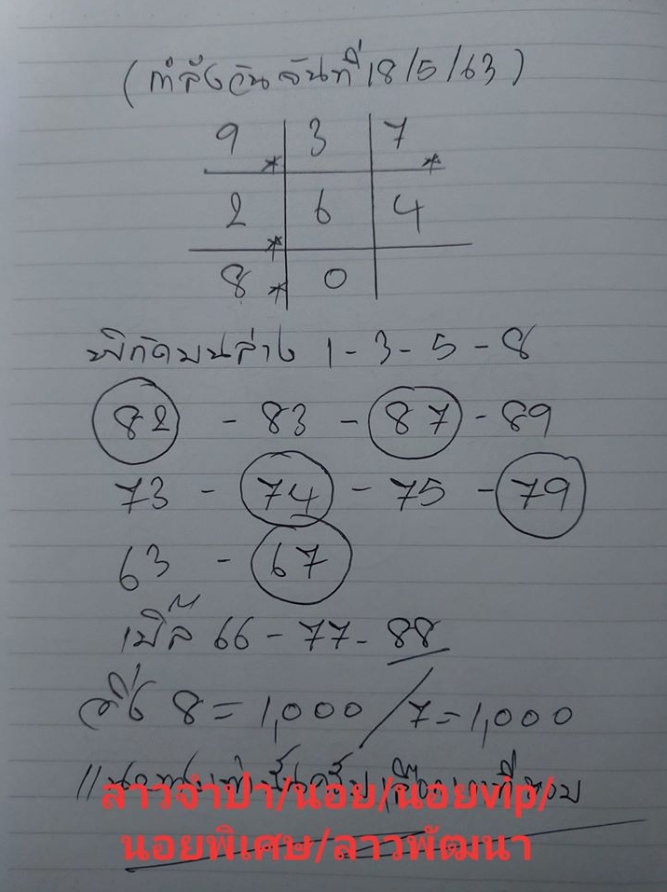 (กำลังวันจันที่ 18/5/63)
9 * 3 7 *
2 * 6 4
8 * 0
พิกัดบนล่าง 1-3-5-8
82 - 83 - 87 - 89
73 - 74 - 75 - 79
63 - 67
เบิ้ล 66-77-88
วิ่ง 8=1,000/7=1,000
//
ลาวจำปา/นอย/นอยvip/
นอยพิเศษ/ลาวพัฒนา